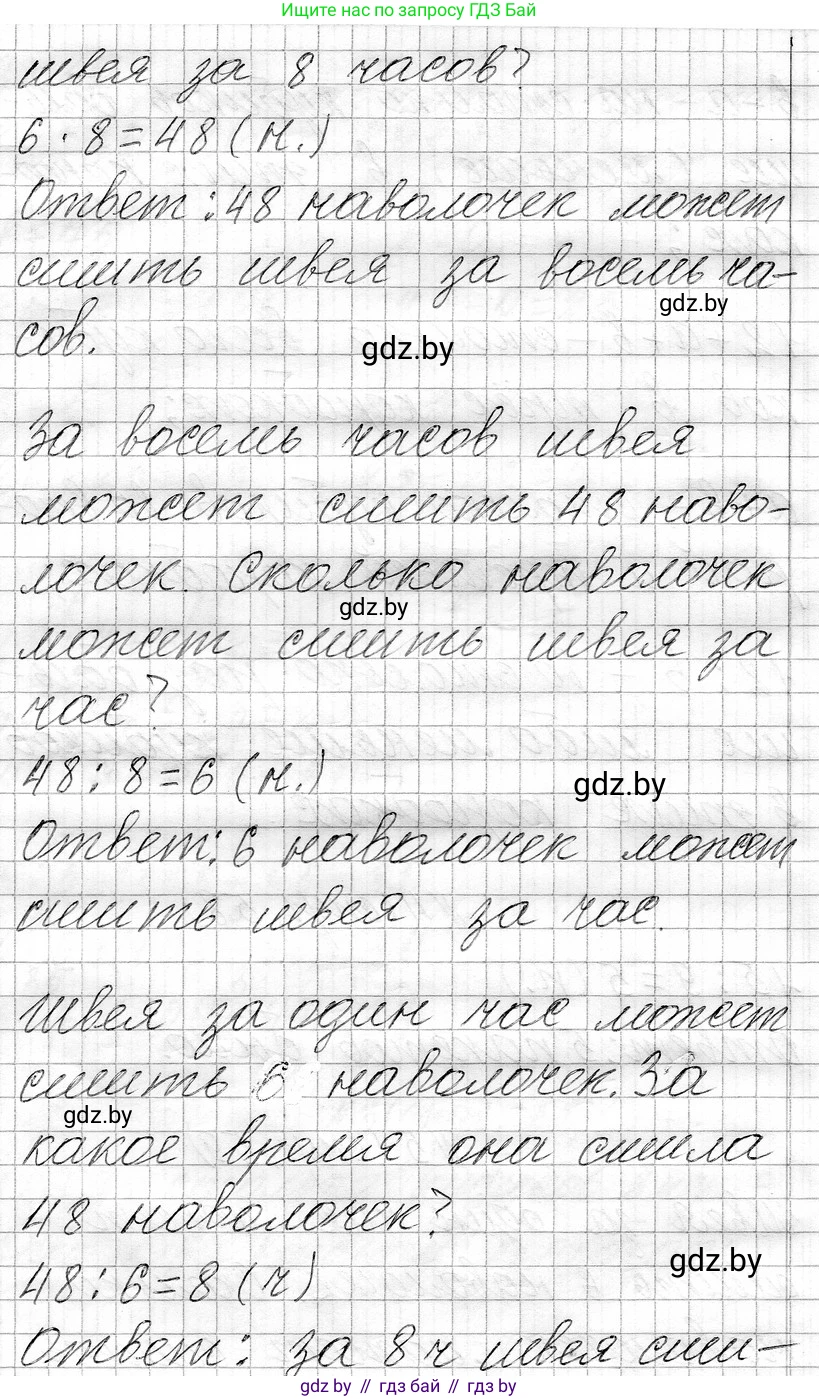 Ищите нас по запросу ГДЗ Бай
швея за 8 часов?
6 · 8 = 48 (н.)
Ответ: 48 наволочек может
сшить швея за восемь ча-
gdz.by
сов.
gdz.by
За восемь часов швея
может сшить 48 наво-
лочек. Сколько наволочек
gdz.by
может сшить швея за
час?
48 : 8 = 6 (н.)
gdz.by
Ответ: 6 наволочек может
сшить швея за час.
Швея за один час может
сшить 6 наволочек. За
gdz.by
какое время она сшила
48 наволочек?
48 : 6 = 8 (ч)
gdz.by
Ответ: за 8 ч швея сши-
gdz.by // гдз бай // гдз.by